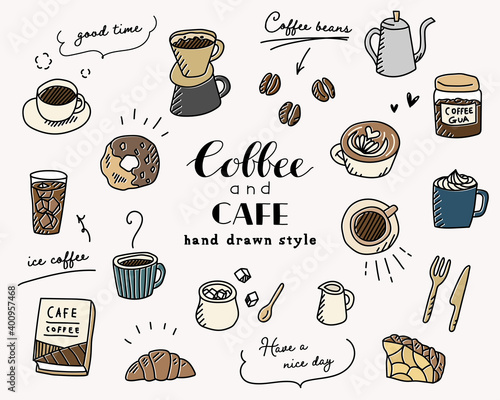 good time
Coffee beans
COFFEE
GUA
Coffee
and
CAFE
hand drawn style
ice coffee
CAFE
COFFEE
Have a
nice day
Adobe Stock | #400957468